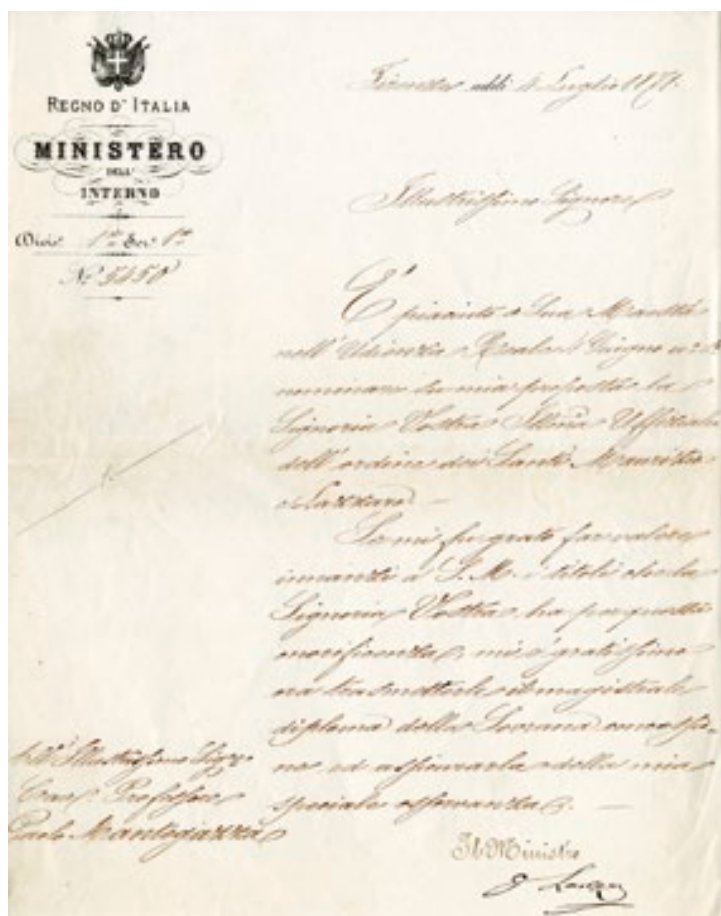 REGNO D'ITALIA
MINISTERO
DELL'
INTERNO
Divis. 1ª Sez. 1ª
Nº 5450
addì 4 Luglio 1871.
Illustrissimo Signore
È piaciuto a Sua Maestà
nell'Udienza Reale 4 Giugno
nominare su mia proposta la
Signoria Vostra Illma Uffiziale
dell'ordine dei Santi Maurizio
e Lazzaro. —
Se mi fu grato far valere
innanzi a S. M. i titoli che la
Signoria Vostra ha per questa
onorificenza, mi è gratissimo
ora trasmetterle il magistrale
diploma della Sovrana concessio-
ne ed assicurarla della mia
speciale osservanza. —
All'Illustrissimo Sigr.
Cav. Professore
Paolo Mantegazza
Il Ministro
G Lanza